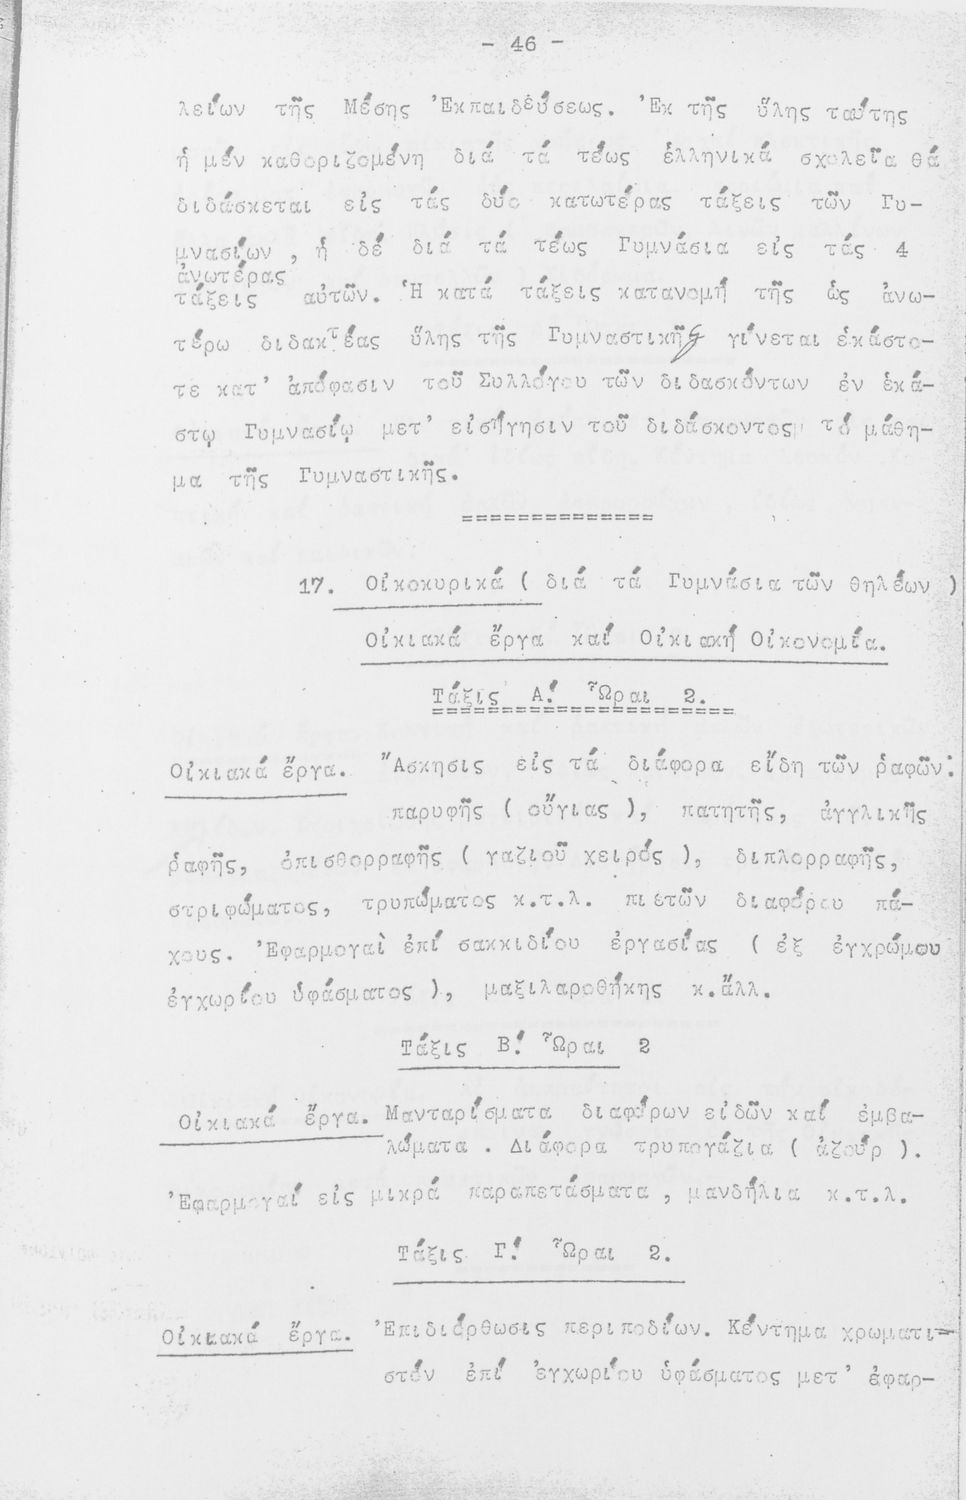 - 46 -
λείων τῆς Μέσης Ἐκπαιδεύσεως. Ἐκ τῆς ὕλης ταύτης
ἡ μέν καθοριζομένη διά τά τέως ἑλληνικά σχολεῖα θά
διδάσκεται εἰς τάς δύο κατωτέρας τάξεις τῶν Γυ-
μνασίων , ἡ δέ διά τά τέως Γυμνάσια εἰς τάς 4
ἀνωτέρας
τάξεις αὐτῶν. Ἡ κατά τάξεις κατανομή τῆς ὡς ἀνω-
τέρω διδακτέας ὕλης τῆς Γυμναστικῆς γίνεται ἑκάστο-
τε κατ' ἀπόφασιν τοῦ Συλλόγου τῶν διδασκόντων ἐν ἑκά-
στῳ Γυμνασίῳ μετ' εἰσήγησιν τοῦ διδάσκοντος τό μάθη-
μα τῆς Γυμναστικῆς.
==============
17. Οἰκοκυρικά ( διά τά Γυμνάσια τῶν θηλέων )
Οἰκιακά ἔργα καί Οἰκιακή Οἰκονομία.
Τάξις Α΄. Ὧραι 2.
Οἰκιακά ἔργα. Ἄσκησις εἰς τά διάφορα εἴδη τῶν ῥαφῶν:
παρυφῆς ( οὔγιας ), πατητῆς, ἀγγλικῆς
ῥαφῆς, ὀπισθορραφῆς ( γαζιοῦ χειρός ), διπλορραφῆς,
στριφώματος, τρυπώματος κ.τ.λ. πιετῶν διαφόρου πά-
χους. Ἐφαρμογαὶ ἐπί σακκιδίου ἐργασίας ( ἐξ ἐγχρώμου
ἐγχωρίου ὑφάσματος ), μαξιλαροθήκης κ.ἄλλ.
Τάξις Β΄. Ὧραι 2
Οἰκιακά ἔργα. Μανταρίσματα διαφόρων εἰδῶν καί ἐμβα-
λώματα . Διάφορα τρυπογάζια ( ἀζούρ ).
Ἐφαρμογαί εἰς μικρά παραπετάσματα , μανδήλια κ.τ.λ.
Τάξις Γ΄. Ὧραι 2.
Οἰκιακά ἔργα. Ἐπιδιόρθωσις περιποδίων. Κέντημα χρωματι-
στόν ἐπί ἐγχωρίου ὑφάσματος μετ' ἐφαρ-